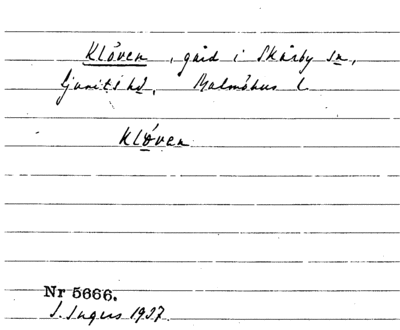 Klöven, gård i Skårby sn,
Ljunits hd, Malmöhus l
Klöven
Nr 5666.
S. Ingers 1927.